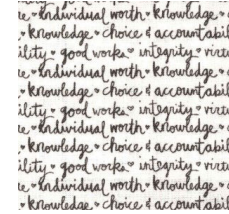 e • individual worth • knowledge
• knowledge • choice & accountabil
ility • good works • integrity • virtu
e • individual worth • knowledge
• knowledge • choice & accountabil
ility • good works • integrity • virtu
e • individual worth • knowledge
• knowledge • choice & accountabil
ility • good works • integrity • virtu
e • individual worth • knowledge
• knowledge • choice & accountabil